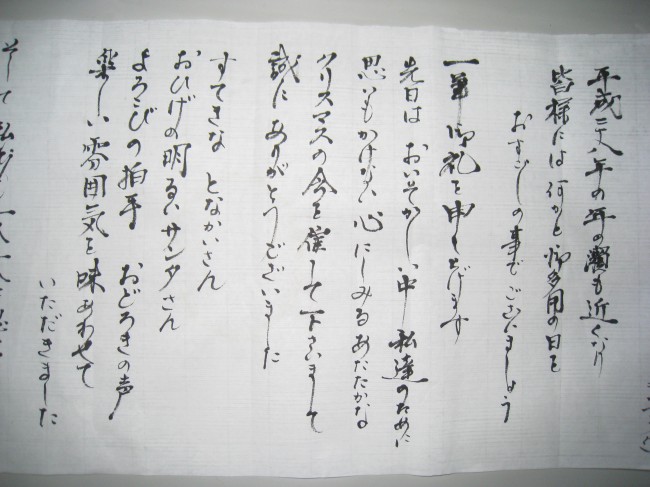 平成二十八年の年の瀬も近くなり
皆様には何かと御多用の日を
おすごしの事でございましょう
一筆御礼を申し上げます
先日は おいそがしい中 私達のために
思いもかけない 心にしみるあたたかな
クリスマスの会を催して下さいまして
誠に ありがとうございました
すてきな となかいさん
おひげの明るいサンタさん
よろこびの拍手 おどろきの声
楽しい雰囲気を味あわせて
いただきました
そして 私